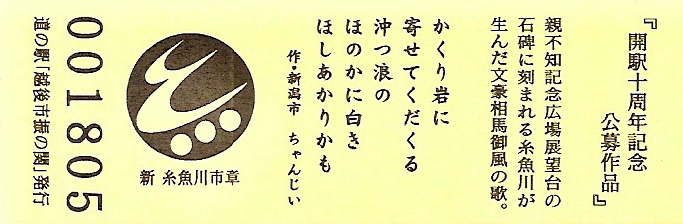 『開駅十周年記念
公募作品』
親不知記念広場展望台の
石碑に刻まれる糸魚川が
生んだ文豪相馬御風の歌。
かくり岩に
寄せてくだくる
沖つ浪の
ほのかに白き
ほしあかりかも
作・新潟市 ちゃんじい
新 糸魚川市章
001805
道の駅「越後市振の関」発行